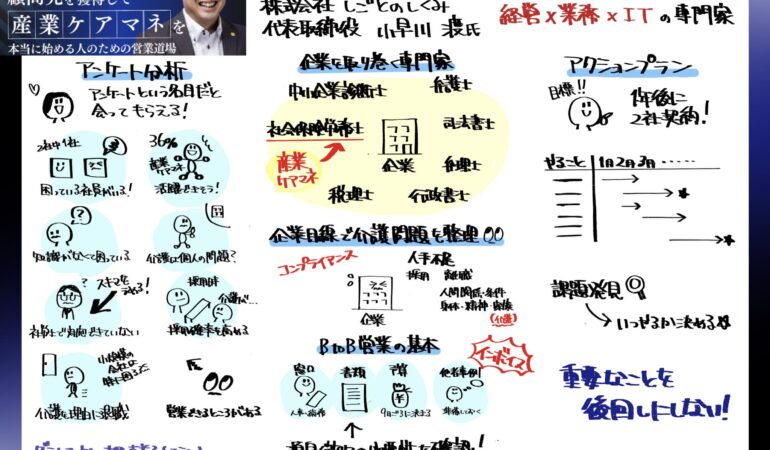 顧問先を獲得して
産業ケアマネを
本当に始める人のための営業道場
株式会社 しごとのしくみ
代表取締役 小早川 渡氏
経営×業務×ITの専門家
アンケート分析
アンケートという名目だと
会ってもらえる!
2社中1社
困っている社員がいる!
36%
産業
ケアマネ
活躍できそう!
知識がなくて困っている
介護は個人の問題?
スキマを
うめる!
社労士で対応できていない
採用時
介護で…
採用確率を高める
小規模の
会社には
特に困るを
介護を理由に退職!
営業できるところがある
企業を取り巻く専門家
中小企業診断士
弁護士
社会保険労務士
司法書士
産業
ケアマネ
企業
弁理士
税理士
行政書士
企業目線で介護問題を整理
コンプライアンス
人手不足
採用 離職
人間関係・条件
身体・精神・家族
(介護)
企業
BtoB営業の基本
インボイス
窓口
人事・総務
書類
予算
9月ごろに決まる
他社事例
準備しておく
アクションプラン
目標!!
1年後に
2社契約!
やること 1月2月3月……
課題発見
いつやるか決める
重要なことを
後回しにしない!